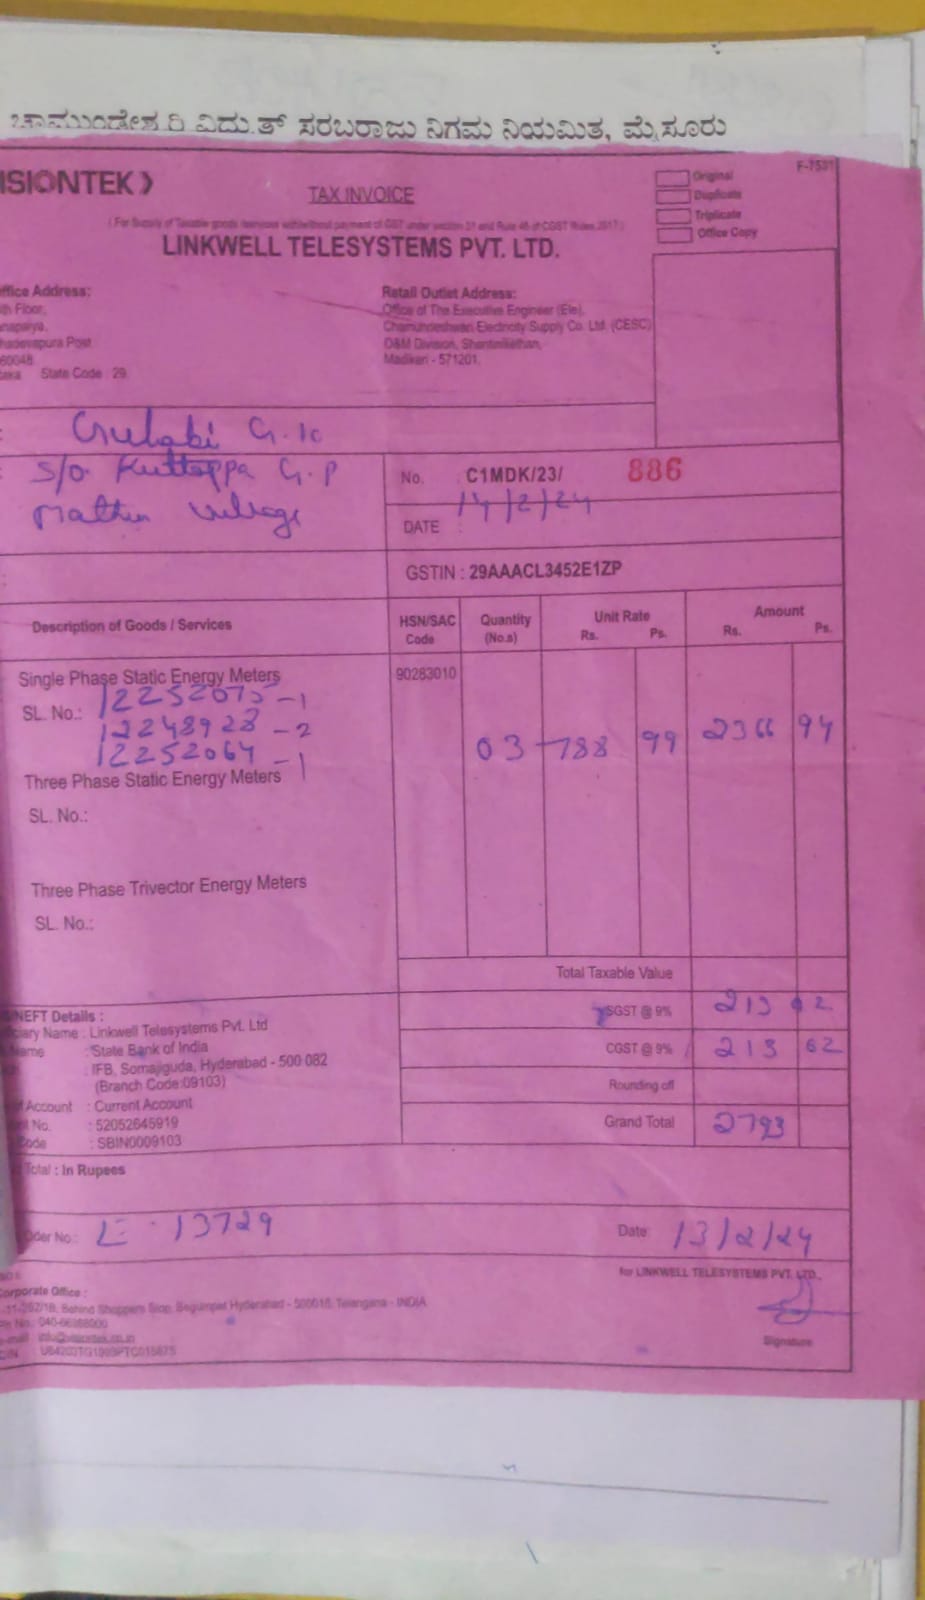 ಚಾಮುಂಡೇಶ್ವರಿ ವಿದ್ಯುತ್ ಸರಬರಾಜು ನಿಗಮ ನಿಯಮಿತ, ಮೈಸೂರು
F-7531
ISIONTEK
TAX INVOICE
Original
Duplicate
Triplicate
Office Copy
LINKWELL TELESYSTEMS PVT. LTD.
ffice Address:
th Floor,
napalya,
hadevapura Post
60048.
taka State Code : 29
Retail Outlet Address:
Office of The Executive Engineer (Ele),
Chamundeshwari Electricity Supply Co. Ltd. (CESC)
O&M Division, Shantinikethan,
Madikeri - 571201.
Gulabi G.K
S/o Kuttappa G.P
Village
No. C1MDK/23/ 886
DATE : 14/2/24
GSTIN : 29AAACL3452E1ZP
Description of Goods / Services
HSN/SAC Code
Quantity (No.s)
Unit Rate Rs. Ps.
Amount Rs. Ps.
Single Phase Static Energy Meters 90283010
SL. No.: 12252075 -1
12248928 -2
12252064 -1
03 788 99 2366 94
Three Phase Static Energy Meters
SL. No.:
Three Phase Trivector Energy Meters
SL. No.:
Total Taxable Value
SGST @ 9% 213 02
CGST @ 9% 213 62
Rounding off
Grand Total 2793
NEFT Details :
ciary Name : Linkwell Telesystems Pvt. Ltd
Name : State Bank of India
: IFB, Somajiguda, Hyderabad - 500 082
(Branch Code:09103)
Account : Current Account
No. : 52052645919
Code : SBIN0009103
Total : In Rupees
Oder No.: L - 13729
Date: 13/2/24
for LINKWELL TELESYSTEMS PVT. LTD.,
Corporate Office :
Behind Shoppers Stop, Begumpet Hyderabad - 500016, Telangana - INDIA
Signature